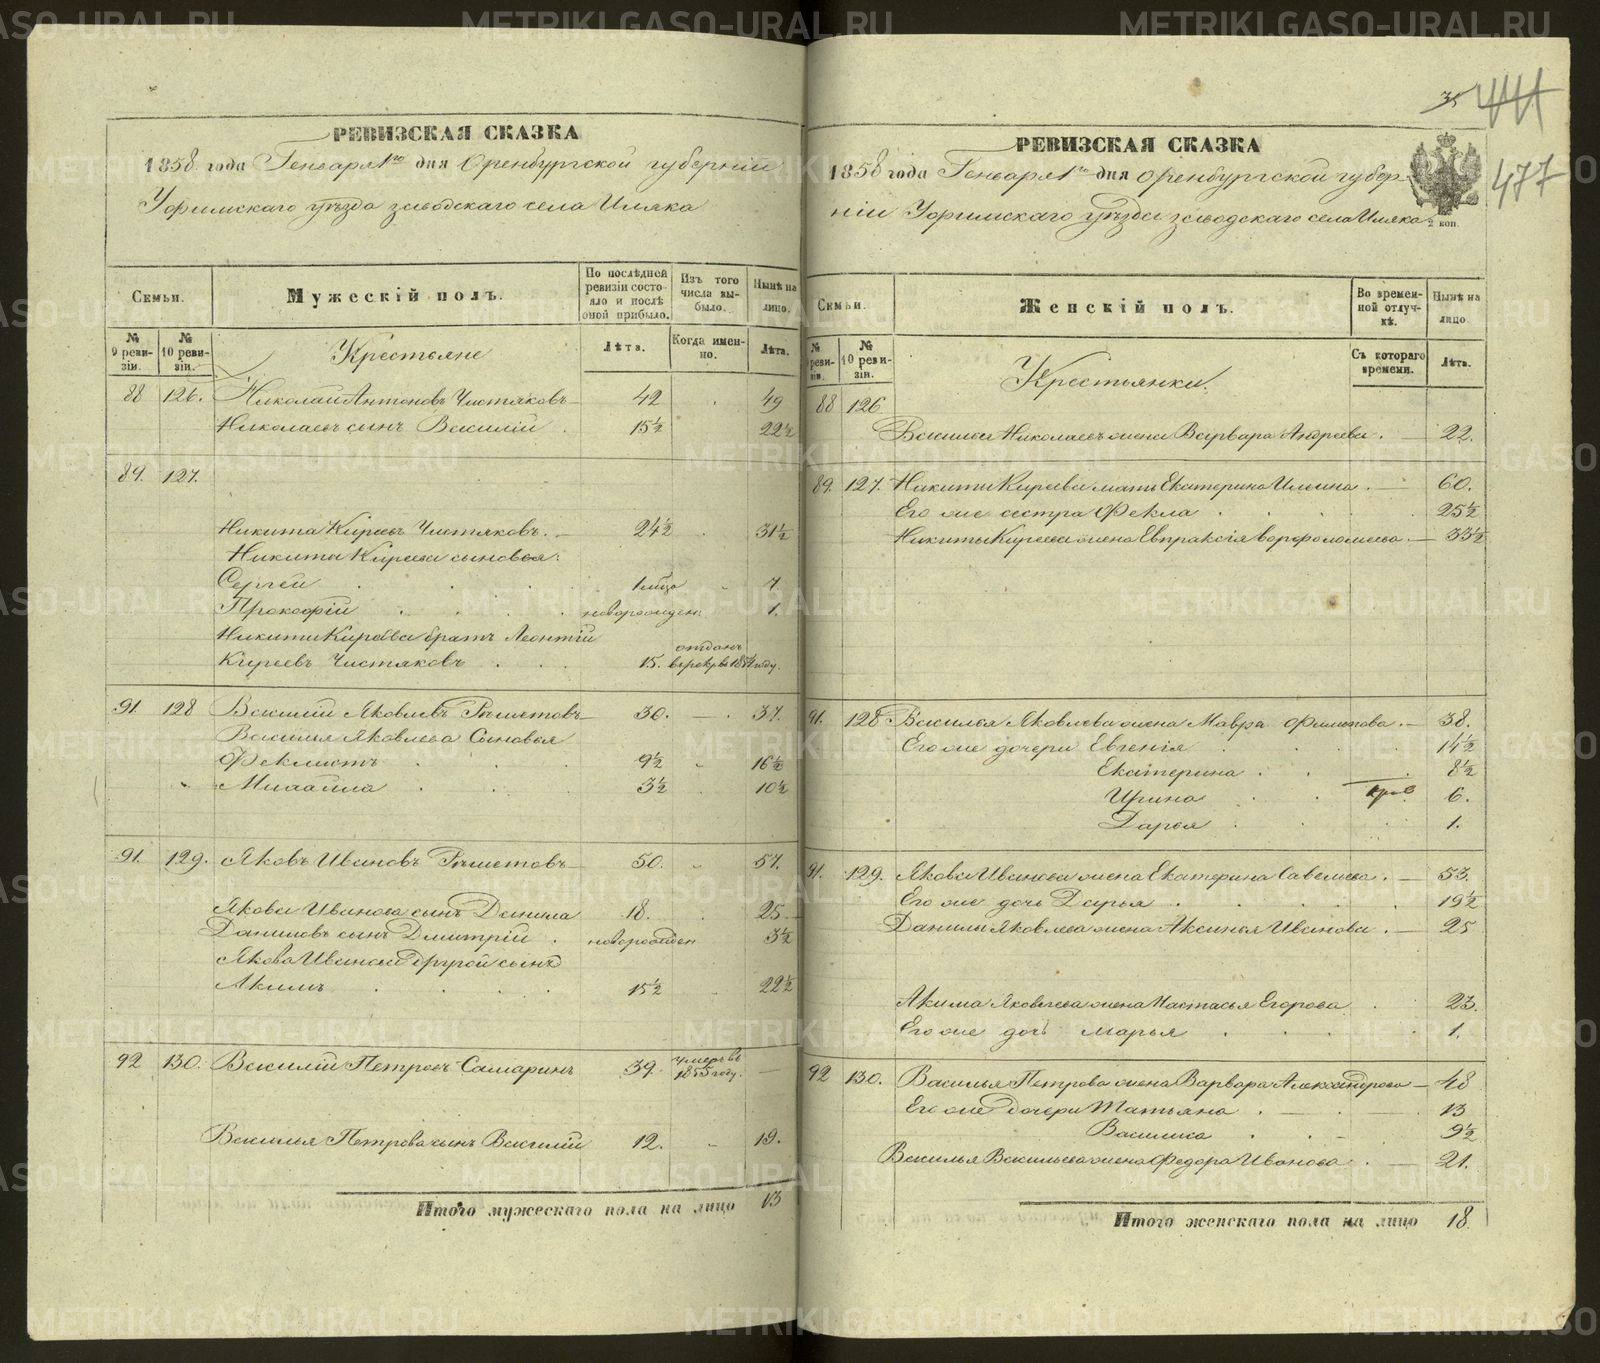 РЕВИЗСКАЯ СКАЗКА
1858 года Генваря 1го дня Оренбургской губерніи
Уфимскаго уѣзда заводскаго села Иляка
Семьи.
Мужескій полъ.
По послѣдней ревизіи состояло и послѣ оной прибыло.
Изъ того числа выбыло.
Нынѣ на лицо.
№ 9 ревизіи.
№ 10 ревизіи.
Крестьяне
Лѣта.
Когда именно.
Лѣта.
88 126. Николай Антоновъ Чистяковъ 42 49
Николаевъ сынъ Василій 15½ 22½
89. 127.
Никита Киреевъ Чистяковъ. 24½ 31½
Никиты Киреева сыновья:
Сергей 1 мѣсяца 7.
Прокофій новорожден 1.
Никиты Киреева братъ Леонтій
Киреевъ Чистяковъ 15. отданъ в рекруты в 1854 году.
91. 128 Василій Яковлевъ Рѣшетовъ 30. 37.
Василья Яковлева Сыновья
Феклистъ 9½ 16½
Михайла 3½ 10½
91. 129. Яковъ Ивановъ Рѣшетовъ 50. 57.
Якова Иванова сынъ Данила 18. 25.
Даниловъ сынъ Дмитрій новорожден 3½
Якова Иванова другой сынъ
Акимъ 15½ 22½
92 130. Василій Петровъ Самаринъ 39. умеръ въ 1855 году. —
Василья Петрова сынъ Василій 12. 19.
Итого мужескаго пола на лицо 13
35
477
РЕВИЗСКАЯ СКАЗКА
1858 года Генваря 1го дня Оренбургской губер-
ніи Уфимскаго уѣзда заводскаго села Иляка
2 коп.
Семьи.
Женскій полъ.
Во временной отлучкѣ.
Нынѣ на лицо
№ 9 ревизіи.
№ 10 ревизіи.
Крестьянки.
Съ котораго времени.
Лѣта.
88 126
Василья Николаева жена Варвара Андреева. 22.
89. 127. Никиты Киреева мать Екатерина Ильина. 60.
Его же сестра Фекла 25½
Никиты Киреева жена Евпраксія Варфоломеева. 33½
91. 128 Василья Яковлева жена Мавра Филипова. 38.
Его же дочери Евгенія 14½
Екатерина 8½
Ирина 6.
Дарья 1.
91. 129. Якова Иванова жена Екатерина Савельева. 53.
Его же дочь Дарья 19½
Данилы Яковлева жена Аксинья Иванова. 25
Акима Яковлева жена Настасья Егорова 23.
Его же дочь Марья 1.
92 130. Василья Петрова жена Варвара Александрова 48
Его же дочери Татьяна 13
Василиса 9½
Василья Васильева жена Федора Иванова 21.
Итого женскаго пола на лицо 18.
METRIKI.GASO-URAL.RU